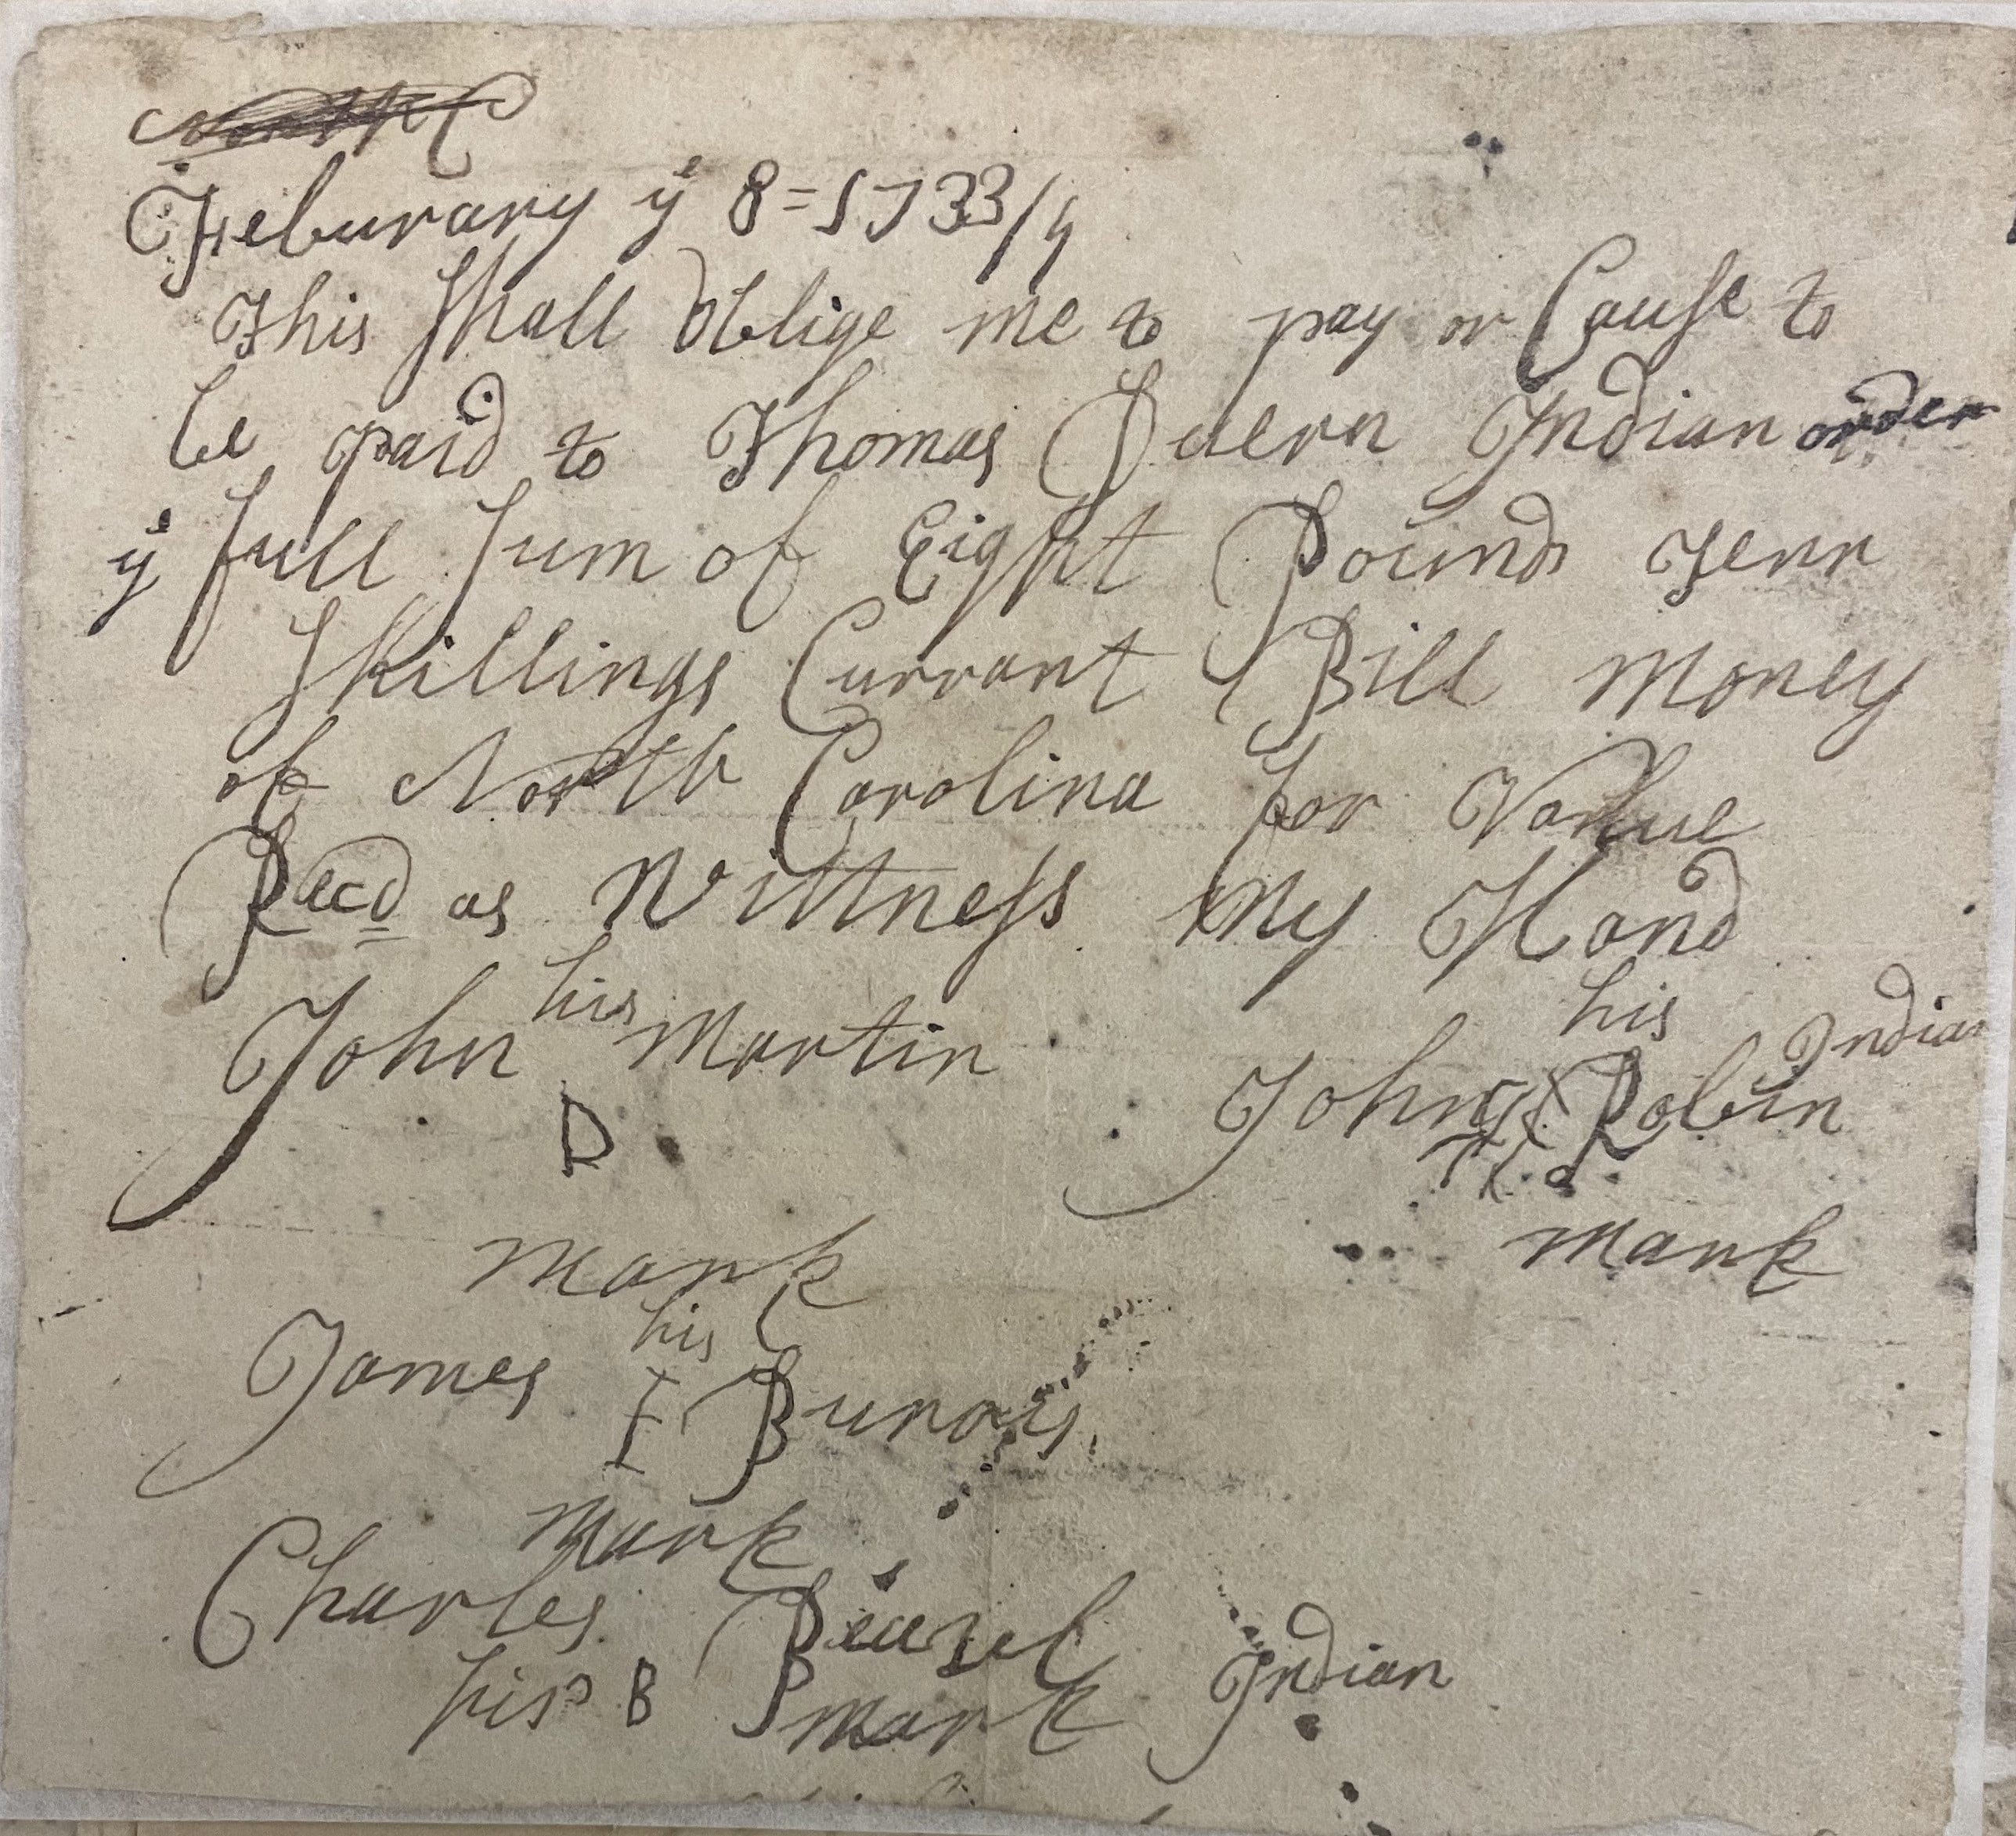 Feburary ye 8=1733/4
This Shall Oblige me to pay or Cause to
be paid to Thomas Duern Indian order
ye full Sum of Eight Pounds Tenn
Shillings Currant Bill Money
of North Carolina for Value
Recd as Wittness My Hand
his
John Martin
D
mark
his Indian
John Robin
mark
his
James I Burows
mark
Charles Beazel
his B mark Indian